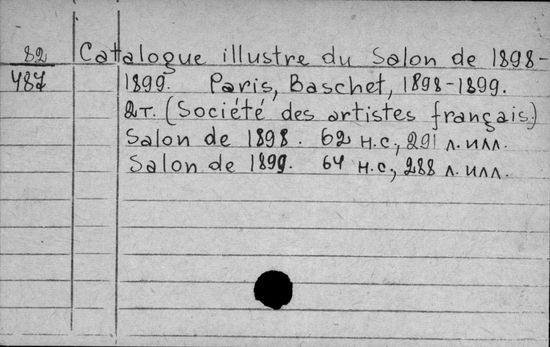 82 Catalogue illustre du Salon de 1898-
487 1899. Paris, Baschet, 1898-1899.
2т. (Société des artistes français)
Salon de 1898. 62 н.с., 291 л. илл.
Salon de 1899. 64 н.с., 288 л. илл.